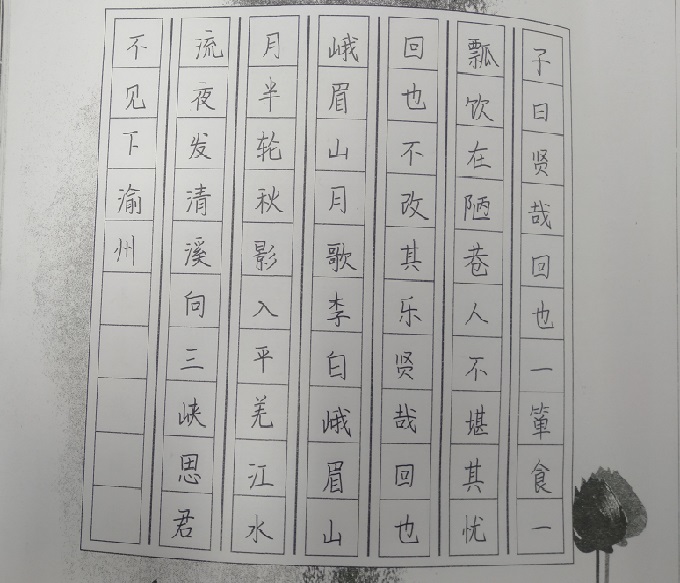 子曰贤哉回也一箪食一
瓢饮在陋巷人不堪其忧
回也不改其乐贤哉回也
峨眉山月歌李白峨眉山
月半轮秋影入平羌江水
流夜发清溪向三峡思君
不见下渝州